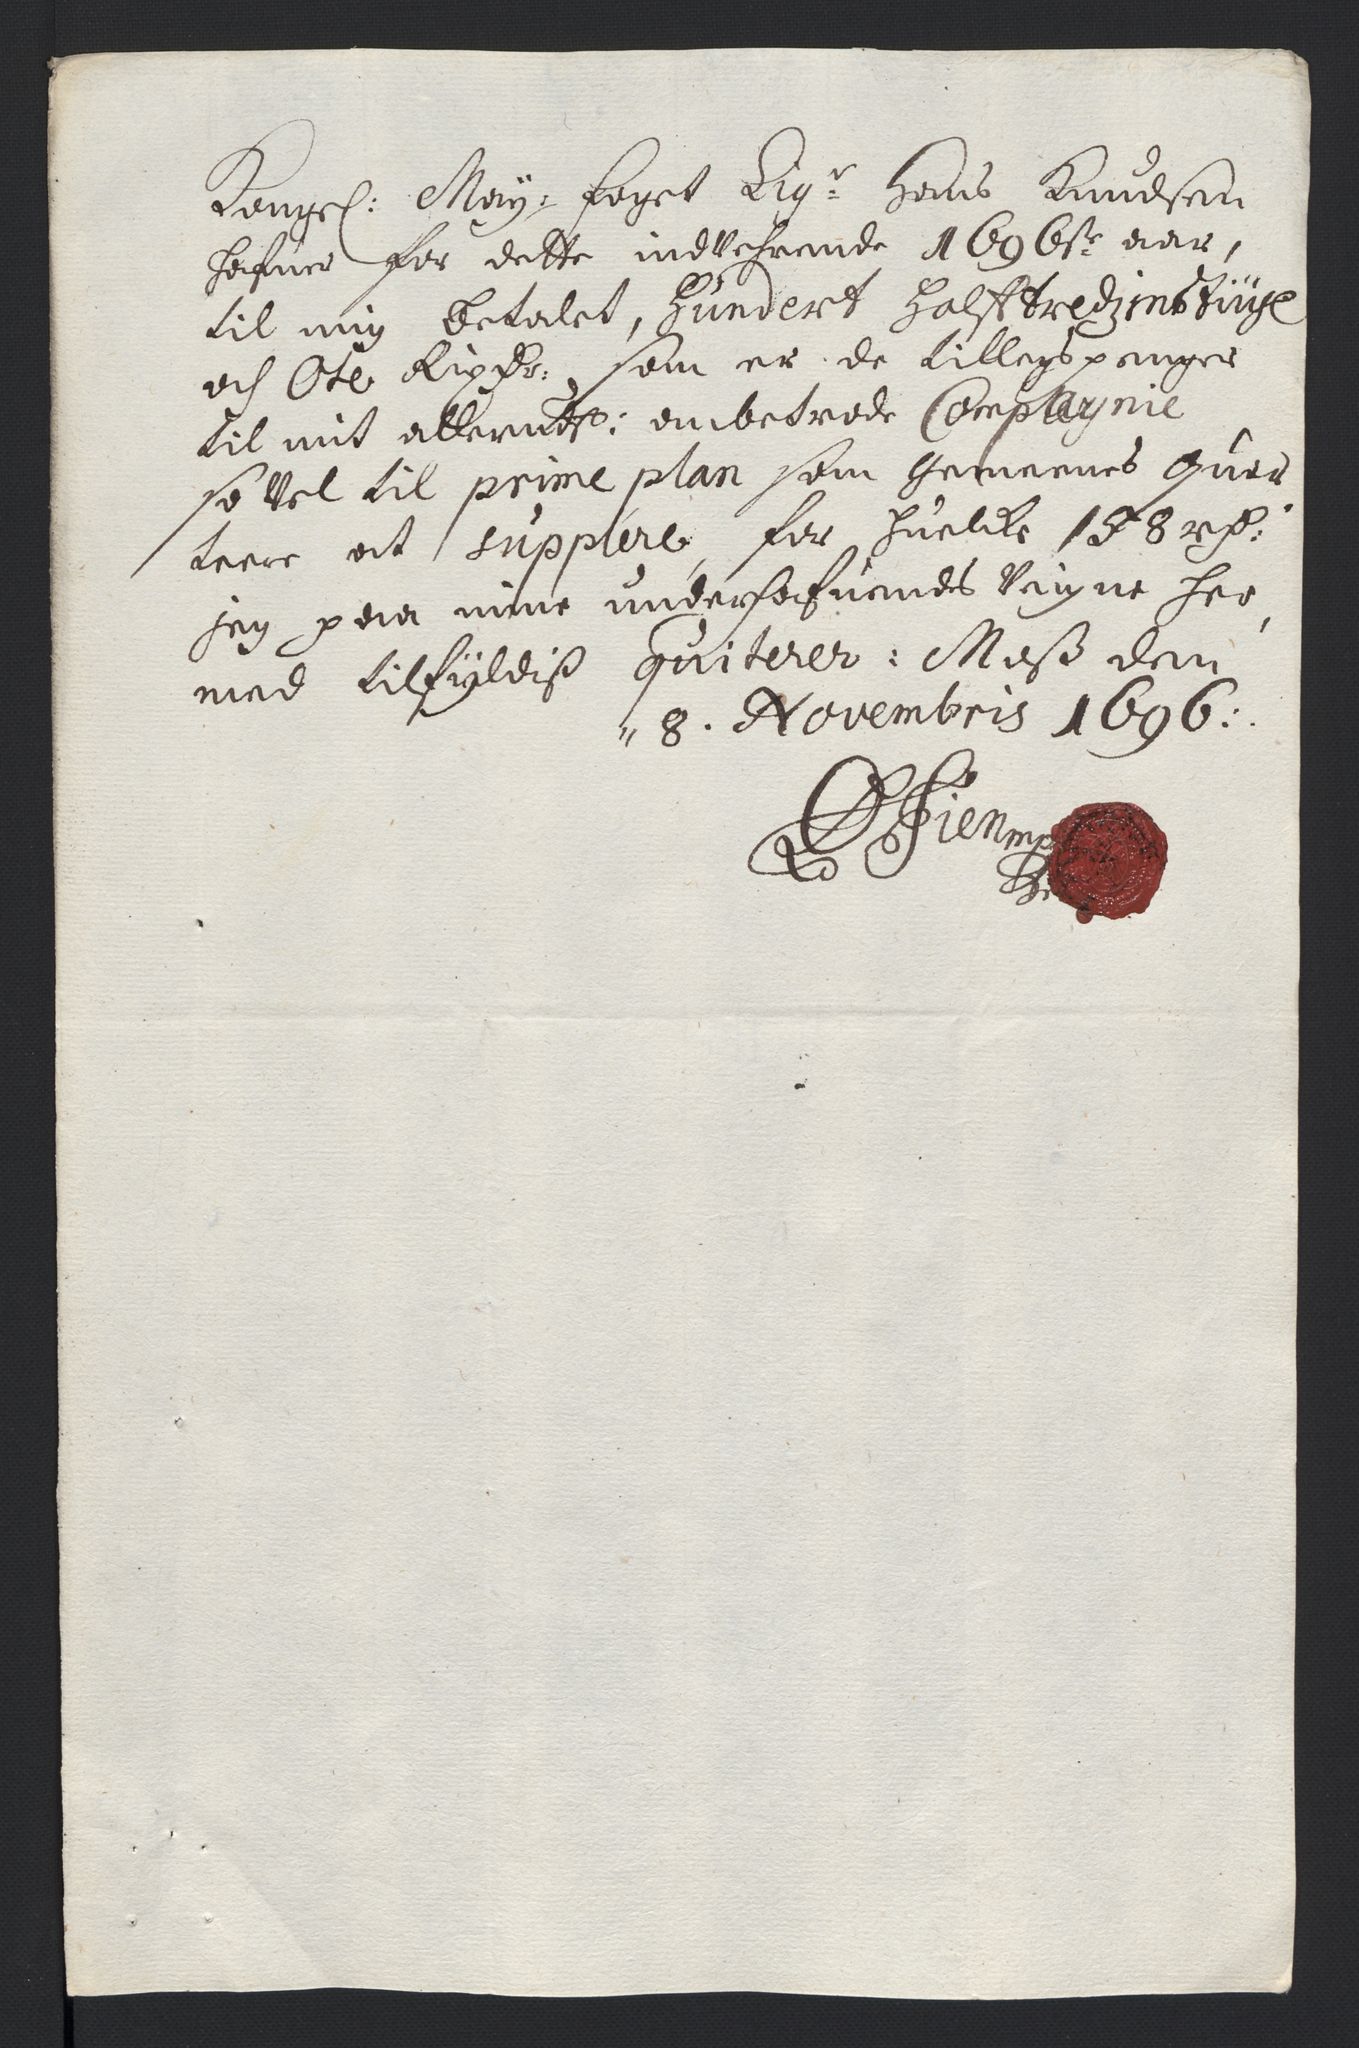 Kongel: May: foget Sigr. Hans Knudsen
hafuer for dette indVehrende 1696ste aar,
til mig betalet, Hundert Halfftredzinstiuge
och Otte Rixdr: som er de tillegspenger
til mit allernaadst: anbetrode Compagnie
so Vel til prime plan som gemeenes quar
teere at suppléré, for huilcke 158 rdr:
jeg paa mine underhafuendes Veigne her,
med tilfyldist quiterer: Moß den
8. Novembris 1696:.